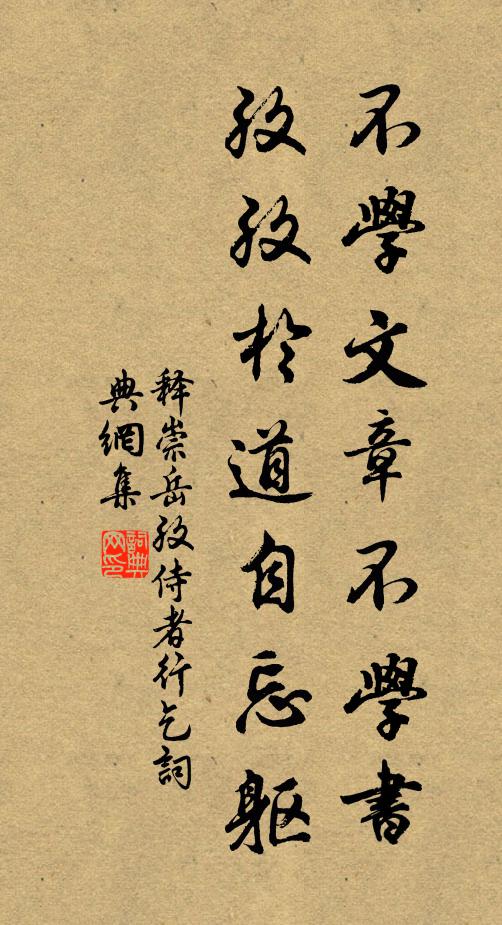 不學文章不學書
孜孜於道自忘軀
释崇岳孜侍者行乞詞
典網集
詞典
网印